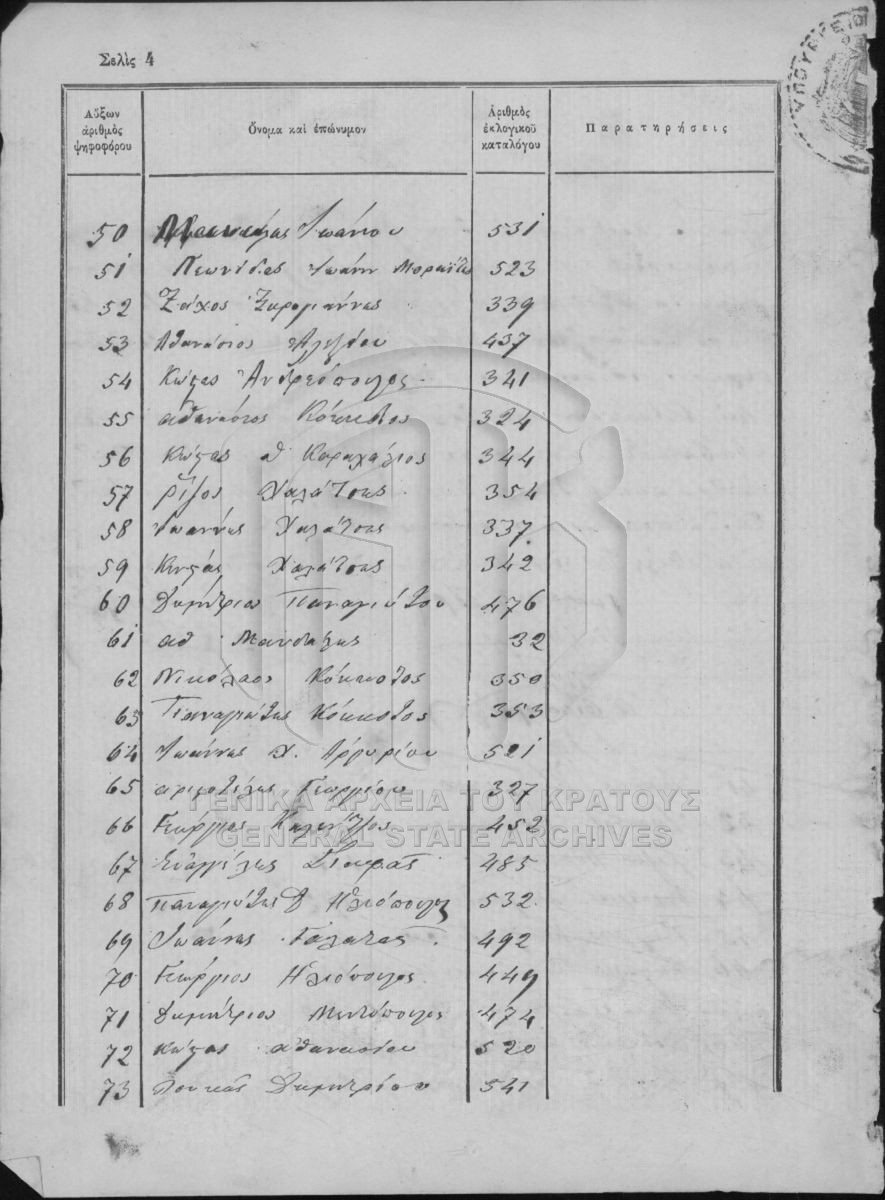 Σελὶς 4
Αὔξων ἀριθμὸς ψηφοφόρου Ὄνομα καὶ ἐπώνυμον Ἀριθμὸς ἐκλογικοῦ καταλόγου Παρατηρήσεις
50 Ἰωάννου 531
51 Λεωνίδας Ἰωάνη Μοραΐτης 523
52 Ζάχος Ζαρογιάννης 339
53 Αθανάσιος Αλεξίου 437
54 Κώστας Ανδρεόπουλος 341
55 αθανάσιος Κόκκοτος 324
56 Κώστας α Καραχάλιος 344
57 ρίζος Χαλάτσης 354
58 Ἰωαννης Χαλάτσης 337
59 Κωστάς Χαλάτσης 342
60 Δημήτριος Παναγιώτου 476
61 αθ Μανταλης 32
62 Νικόλαος Κόκκοτος 350
63 Παναγιώτης Κόκκοτος 353
64 Ἰωάννης Χ. Αργυρίου 521
65 αριστοτέλης Γεωργίου 327
66 Γεώργιος Καλεντζος 452
67 Ευαγγέλης 485
68 Παναγιώτης Δ Ηλιόπουλος 532
69 Ἰωάννης Γαλατάς 492
70 Γεώργιος Ηλιόπουλος 449
71 Δημήτριος Μεντόπουλος 474
72 Κώστας αθανασίου 520
73 Λουκάς Δημητρίου 541
ΓΕΝΙΚΑ ΑΡΧΕΙΑ ΤΟΥ ΚΡΑΤΟΥΣ
GENERAL STATE ARCHIVES